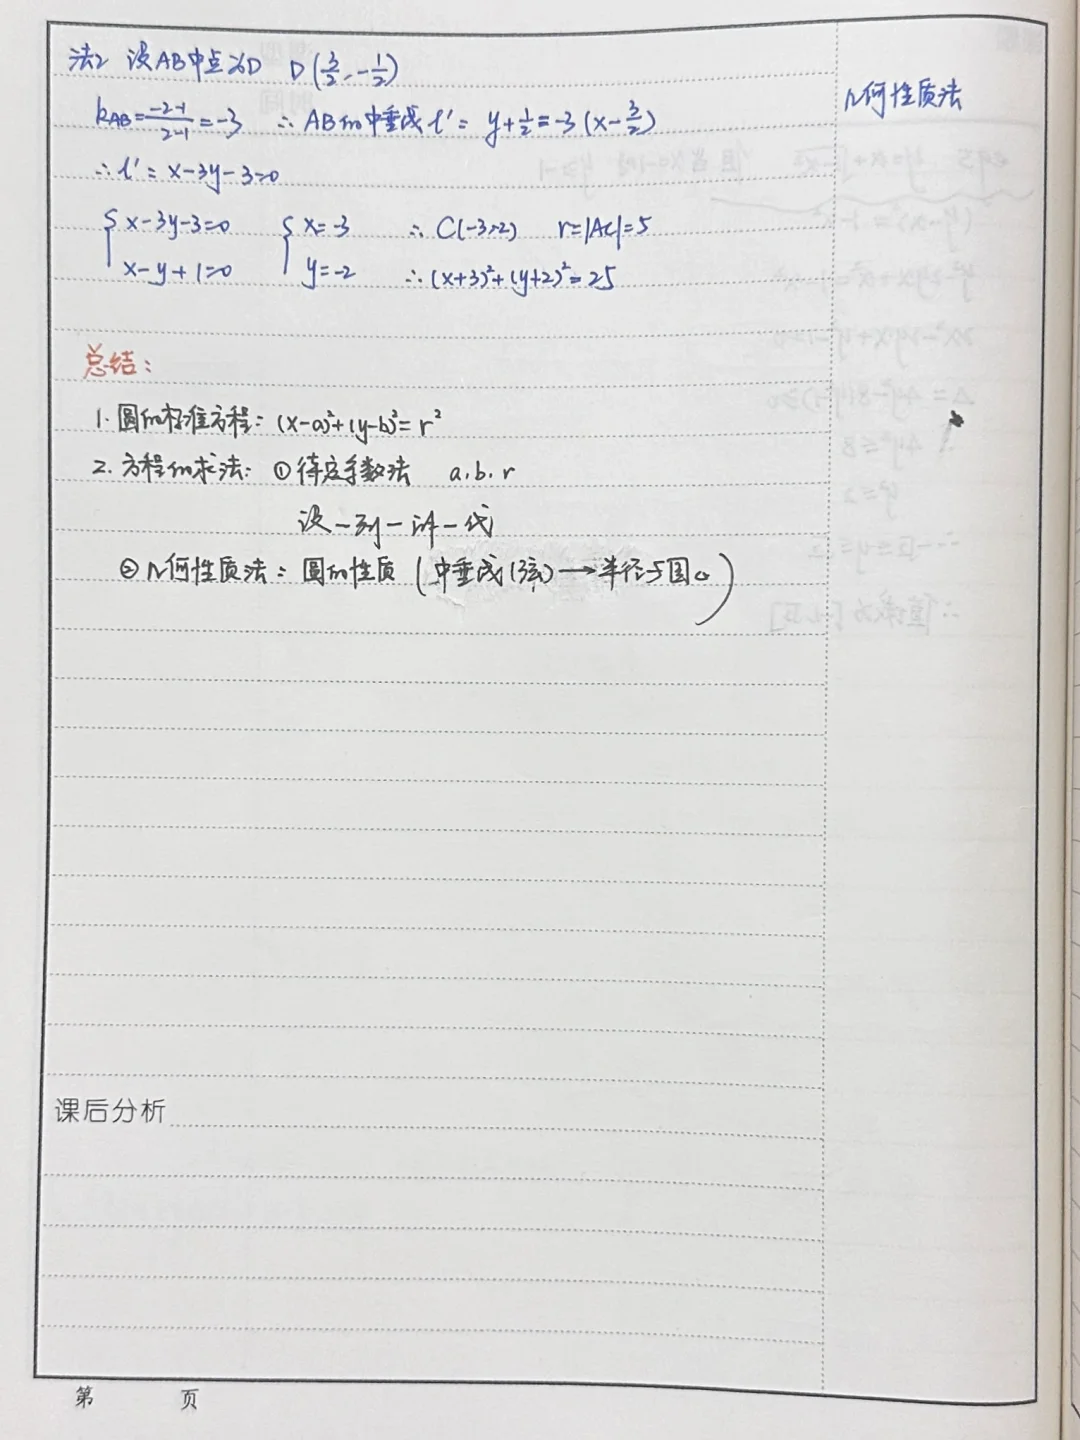 法2 设AB中点为D D(3/2, -1/2)
几何性质法
kAB=(-2-1)/(2-1)=-3 ∴AB的中垂线l'= y+1/2=-3(x-3/2)
∴l'= x-3y-3=0
{x-3y-3=0 {x=-3 ∴C(-3,-2) r=|AC|=5
x-y+1=0 y=-2 ∴(x+3)²+(y+2)²=25
总结:
1. 圆的标准方程: (x-a)²+(y-b)²=r²
2. 方程的求法: ①待定系数法 a.b.r
设-列-解-代
②几何性质法: 圆的性质(中垂线(弦)→半径与圆心)
课后分析
第 页